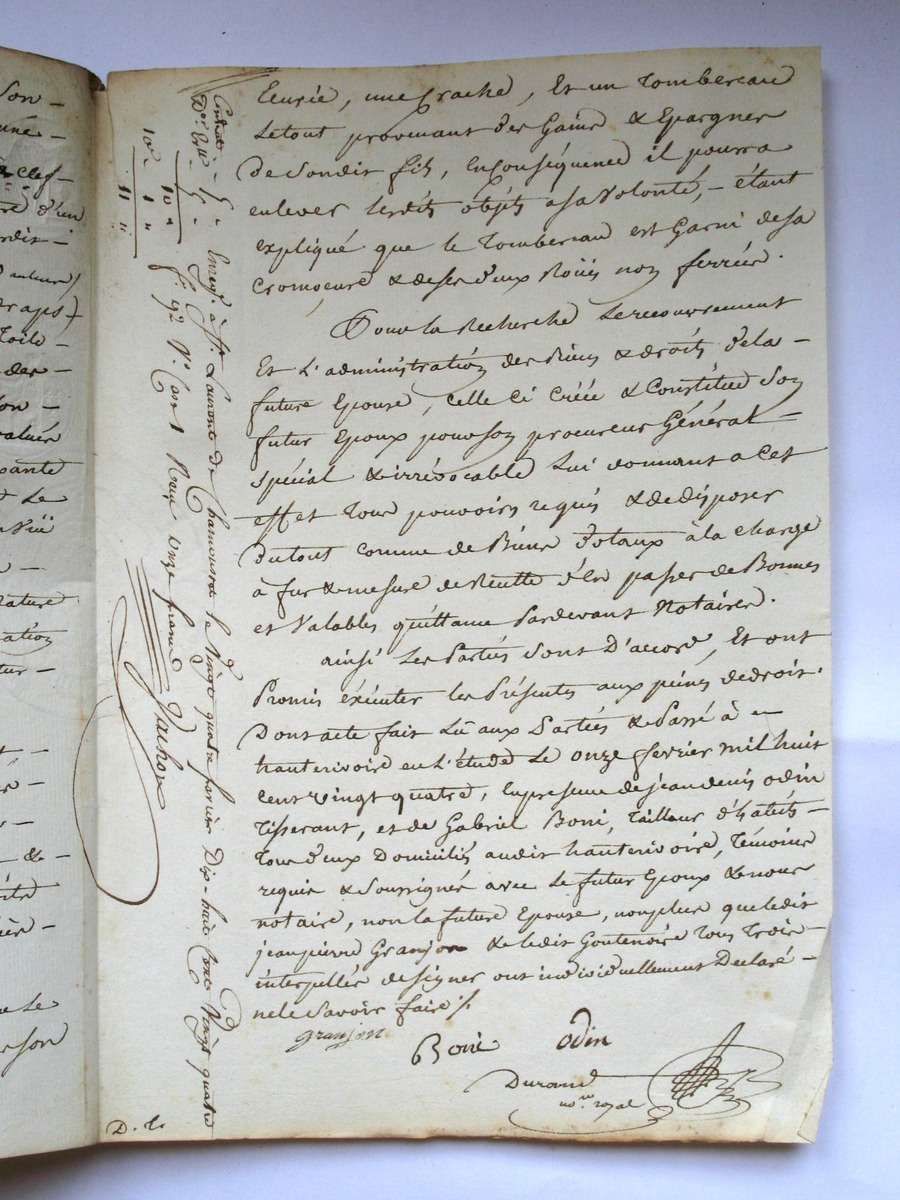 Ecurie, une Crache, Et un Tombereau
Letout provenant des Gains & Epargnes
De Sondit fils, En Conséquence il pourra
enlever lesdits objéts a sa Volonté, – étant
expliqué que le Tombereau est Garni de sa
& de ses deux Roües non ferrées.
Pour la Recherche Le recouvrement
Et L'administration des Biens & droits de la –
future Epouse, celle Ci Créée & Constitue Son
futur Epoux pour son procureur Général –
Spécial & irrévocable Lui donnant a Cet
effet tous pouvoirs requis & de disposer
Du tout comme de Biens Dotaux à la charge
à fur & mesure de Recette d'En passer de Bonnes
et Valables quittance Pardevant Notaires.
ainsi Les Parties sont D'accord, Et ont
Promis exécuter les Présentes aux peines de droit.
Dont acte fait Lû aux Parties & Passé à –
hauterivoire en L'étude Le onze fevrier mil huit
Cent vingt quatre, En presence de jean denis odin
Tisserant, et de Gabriel Boni, Tailleur d'habits –
Tous deux Domiciliés audit hauterivoire, Témoins
requis & Soussignés avec Le futur Epoux & nous
notaire, non la future Epouse, nonplus que ledit
jean pierre Granjon & ledit Goutenoire Tous Trois –
interpellés de signer ont individuellement Declaré –
ne le Savoir faire ./.
granjon
Boni
odin
Durand
no.re royal
D. Le
Contrat – 5"
D.on 5"
10 "
1 "
11 "
Enreg.é à S.t Laurent de Chamousset le Vingt quatre fevrier Dix-huit Cent Vingt quatre
f.o 92 V.o Case 1 Reçu onze francs
Son –
a clef –
D'un
raps) –
Toile –
valués
Et Le
ature
ation
tur –
& –
a Le